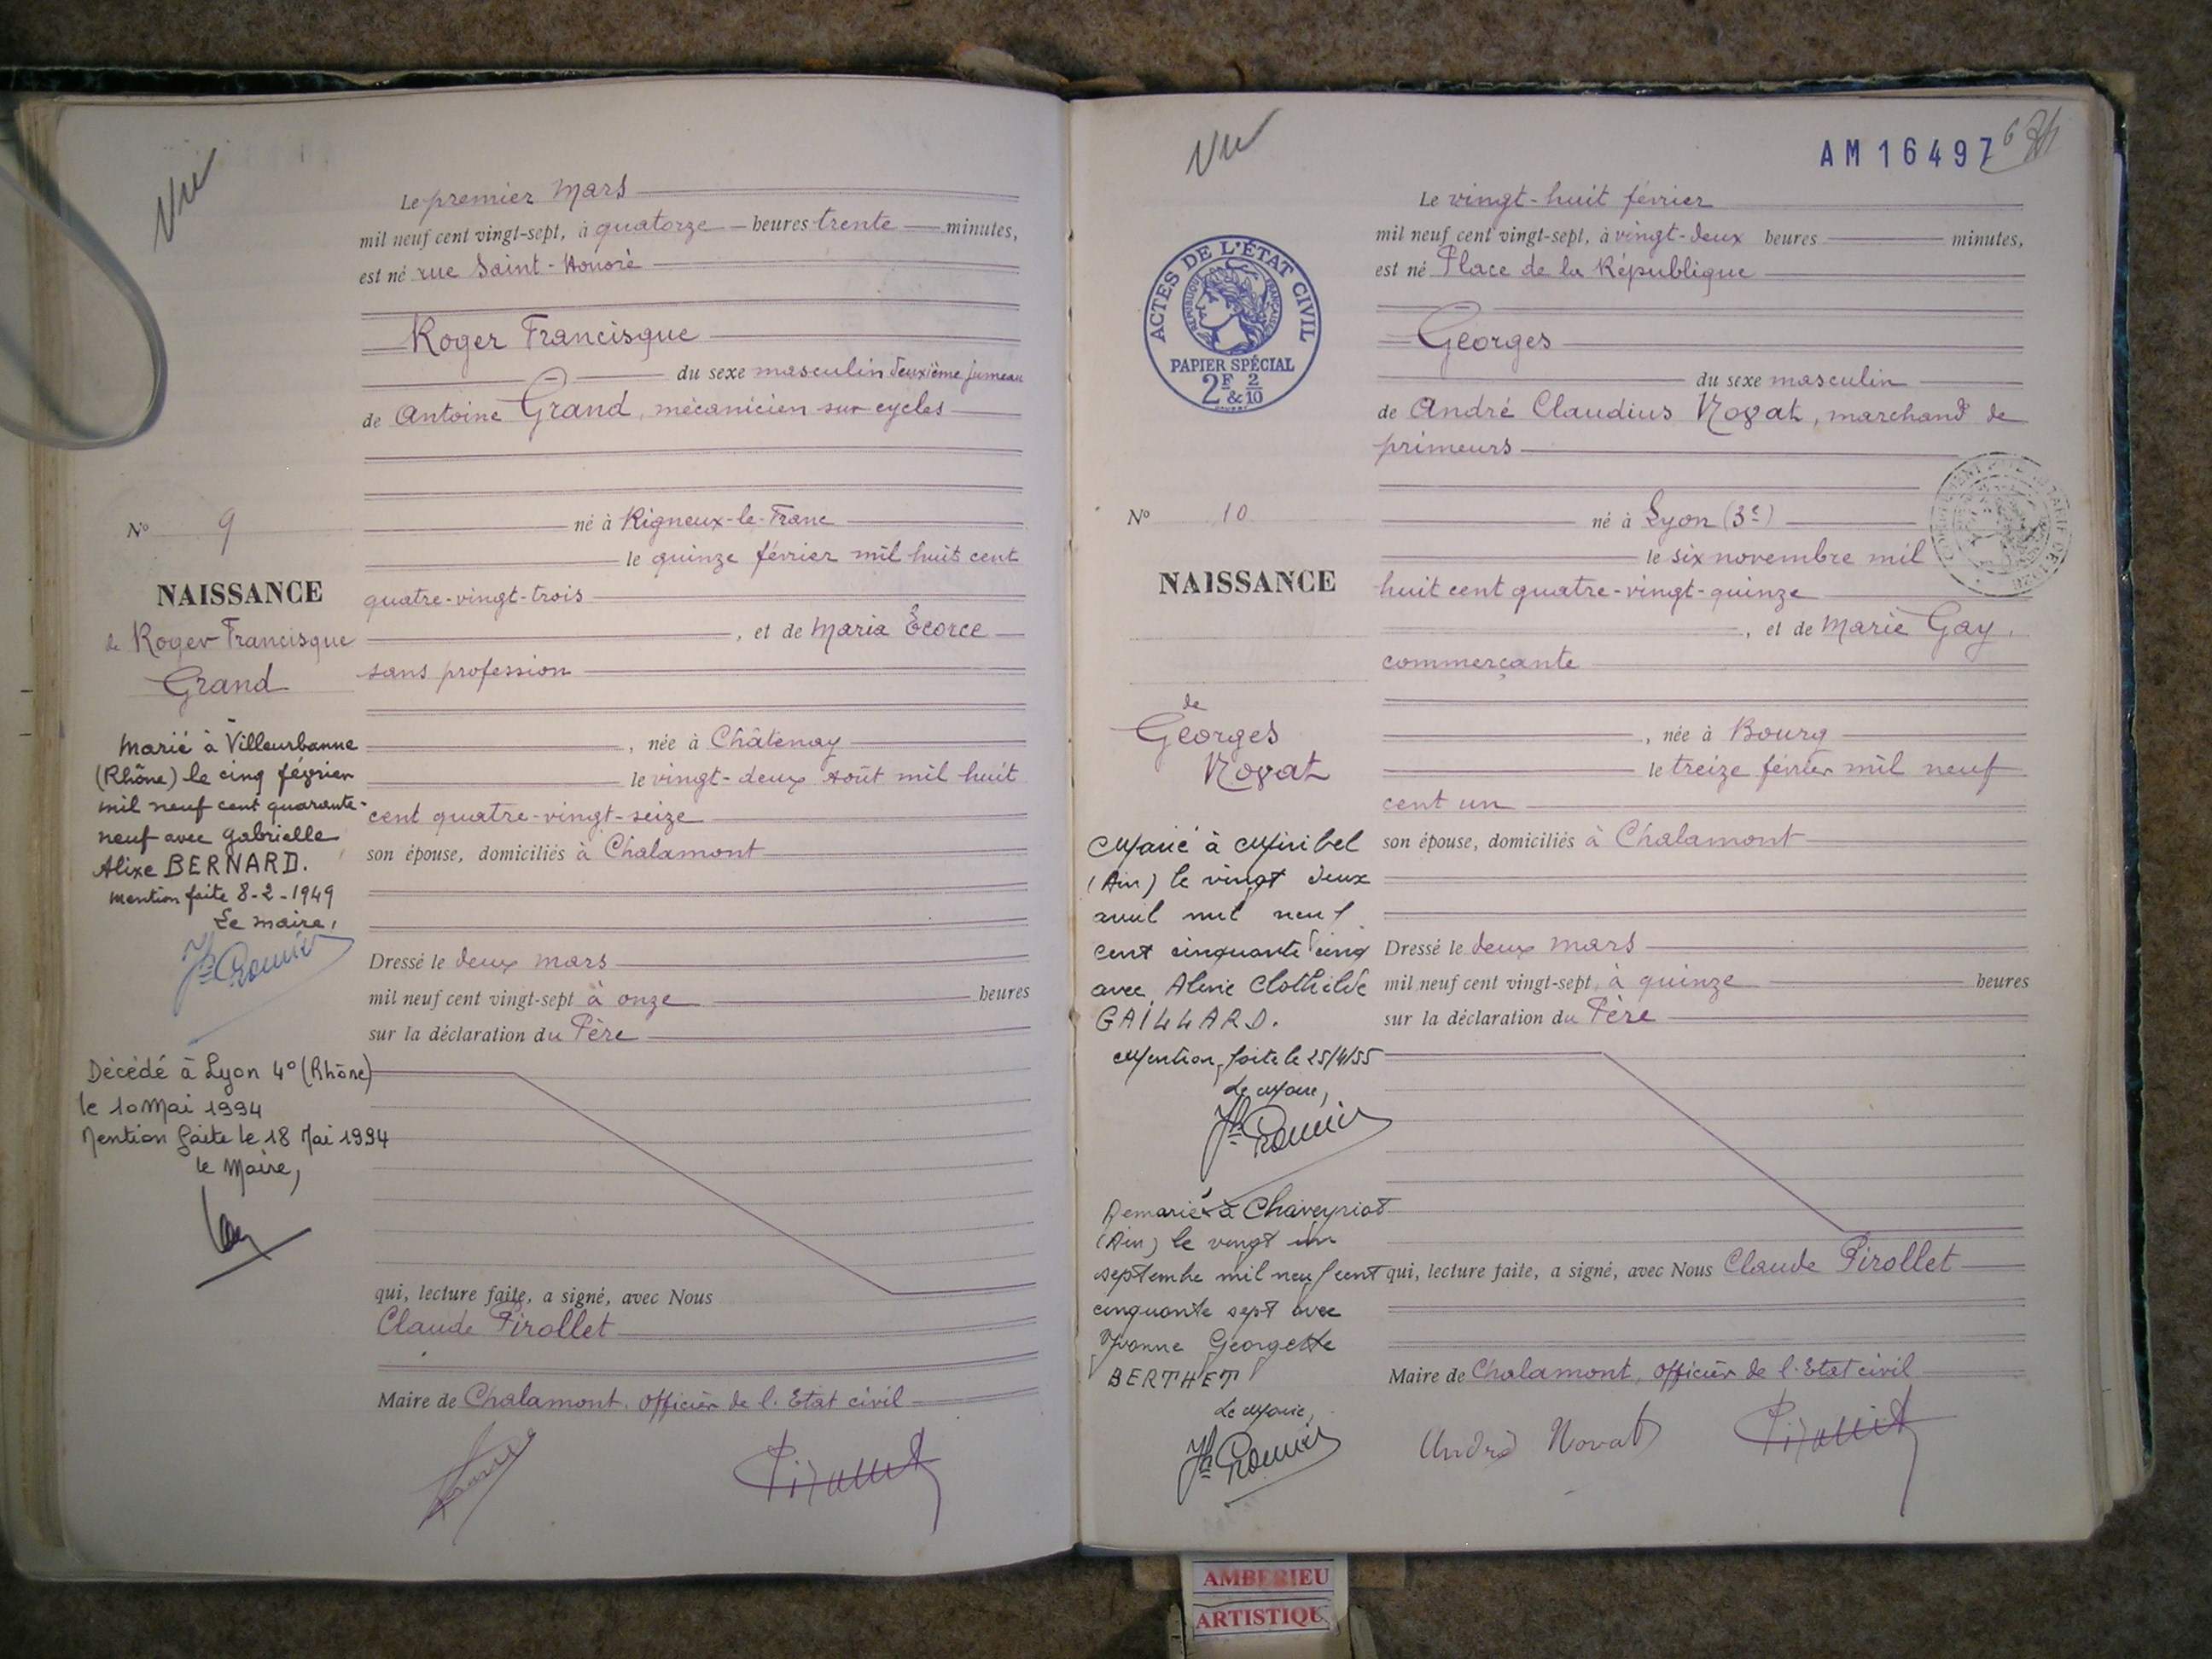 Vu
Le premier mars
mil neuf cent vingt-sept, à quatorze heures trente minutes,
est né rue Saint-Honoré
Roger Francisque
du sexe masculin deuxième jumeau
de Antoine Grand, mécanicien sur cycles
né à Rigneux-le-Franc
le quinze février mil huit cent
quatre-vingt-trois
, et de Maria Ecorce
sans profession
, née à Châtenay
le vingt-deux août mil huit
cent quatre-vingt-seize
son épouse, domiciliés à Chalamont
Dressé le deux mars
mil neuf cent vingt-sept à onze heures
sur la déclaration du Père
qui, lecture faite, a signé, avec Nous
Claude Pirollet
Maire de Chalamont, officier de l'Etat civil
N° 9
NAISSANCE
de Roger Francisque
Grand
Marié à Villeurbanne
(Rhône) le cinq février
mil neuf cent quarante-
neuf avec Gabrielle
Alixe BERNARD.
mention faite 8-2-1949
Le maire,
Décédé à Lyon 4° (Rhône)
le 10 Mai 1994
Mention faite le 18 Mai 1994
le Maire,
Vu
AM16497
ACTES DE L'ÉTAT CIVIL
REPUBLIQUE FRANÇAISE
PAPIER SPÉCIAL
2F & 2/10
Le vingt-huit février
mil neuf cent vingt-sept, à vingt-deux heures minutes,
est né Place de la République
Georges
du sexe masculin
de André Claudius Novat, marchand de
primeurs
né à Lyon (3e)
le six novembre mil
huit cent quatre-vingt-quinze
, et de Marie Gay,
commerçante
, née à Bourg
le treize février mil neuf
cent un
son épouse, domiciliés à Chalamont
Dressé le deux mars
mil neuf cent vingt-sept, à quinze heures
sur la déclaration du Père
qui, lecture faite, a signé, avec Nous Claude Pirollet
Maire de Chalamont, officier de l'Etat civil
André Novat
N° 10
NAISSANCE
de
Georges
Novat
Marié à Miribel
(Ain) le vingt deux
avril mil neuf
cent cinquante cinq
avec Clothilde
GAILLARD.
Mention faite le 25/4/55
Le Maire,
Remarié à Chaveyriat
(Ain) le vingt un
septembre mil neuf cent
cinquante sept avec
Yvonne Georgette
BERTHET
Le Maire,
AMBERIEU
ARTISTIQU